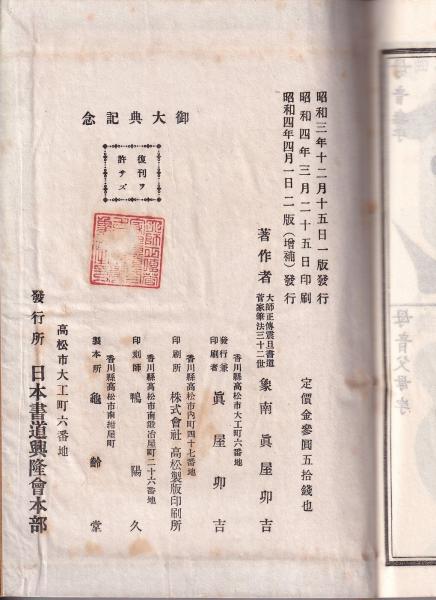 昭和三年十二月十五日一版發行
昭和四年三月二十五日印刷
昭和四年四月一日二版(增補)發行
定價金參圓五拾錢也
著作者
大師正傳震旦書道
菅家筆法三十二世
象南 眞屋卯吉
香川縣高松市大工町六番地
發行兼
印刷者
眞屋卯吉
香川縣高松市内町四十七番地
印刷所 株式會社 高松製版印刷所
香川縣高松市南鍛冶屋町二十六番地
印刻師 鴨陽久
香川縣高松市南紺屋町
製本所 龜齡堂
御大典記念
復刊ヲ
許サズ
高松市大工町六番地
發行所 日本書道興隆會本部